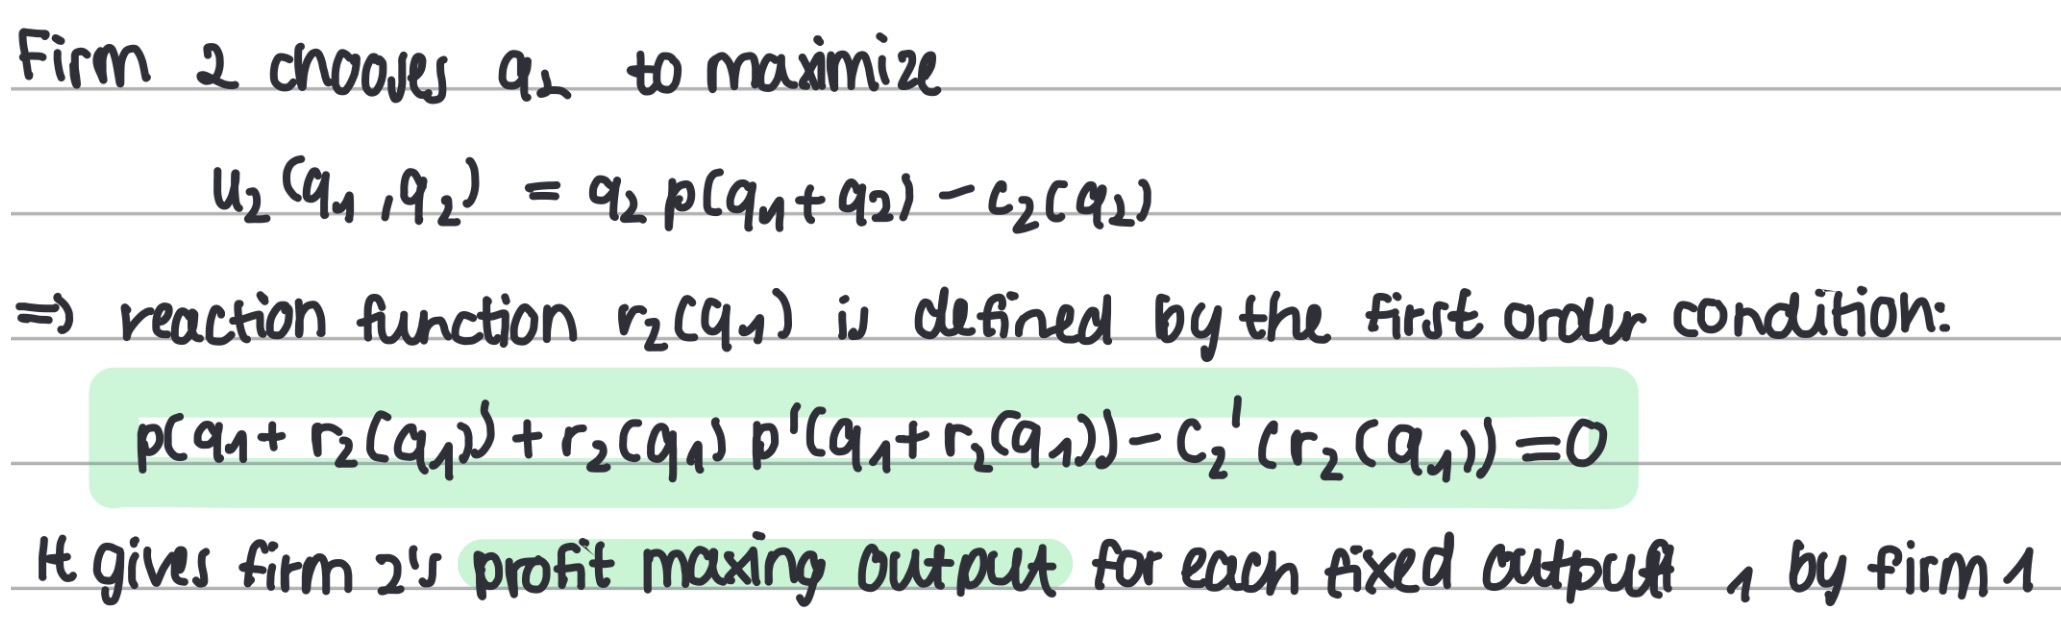 Firm 2 chooses q₂ to maximize
u₂(q₁,q₂) = q₂ p(q₁+q₂) - c₂(q₂)
⇒ reaction function r₂(q₁) is defined by the first order condition:
p(q₁+ r₂(q₁)) + r₂(q₁) p'(q₁+r₂(q₁)) - c₂'(r₂(q₁)) = 0
It gives firm 2's profit maxing output for each fixed output 1 by firm 1